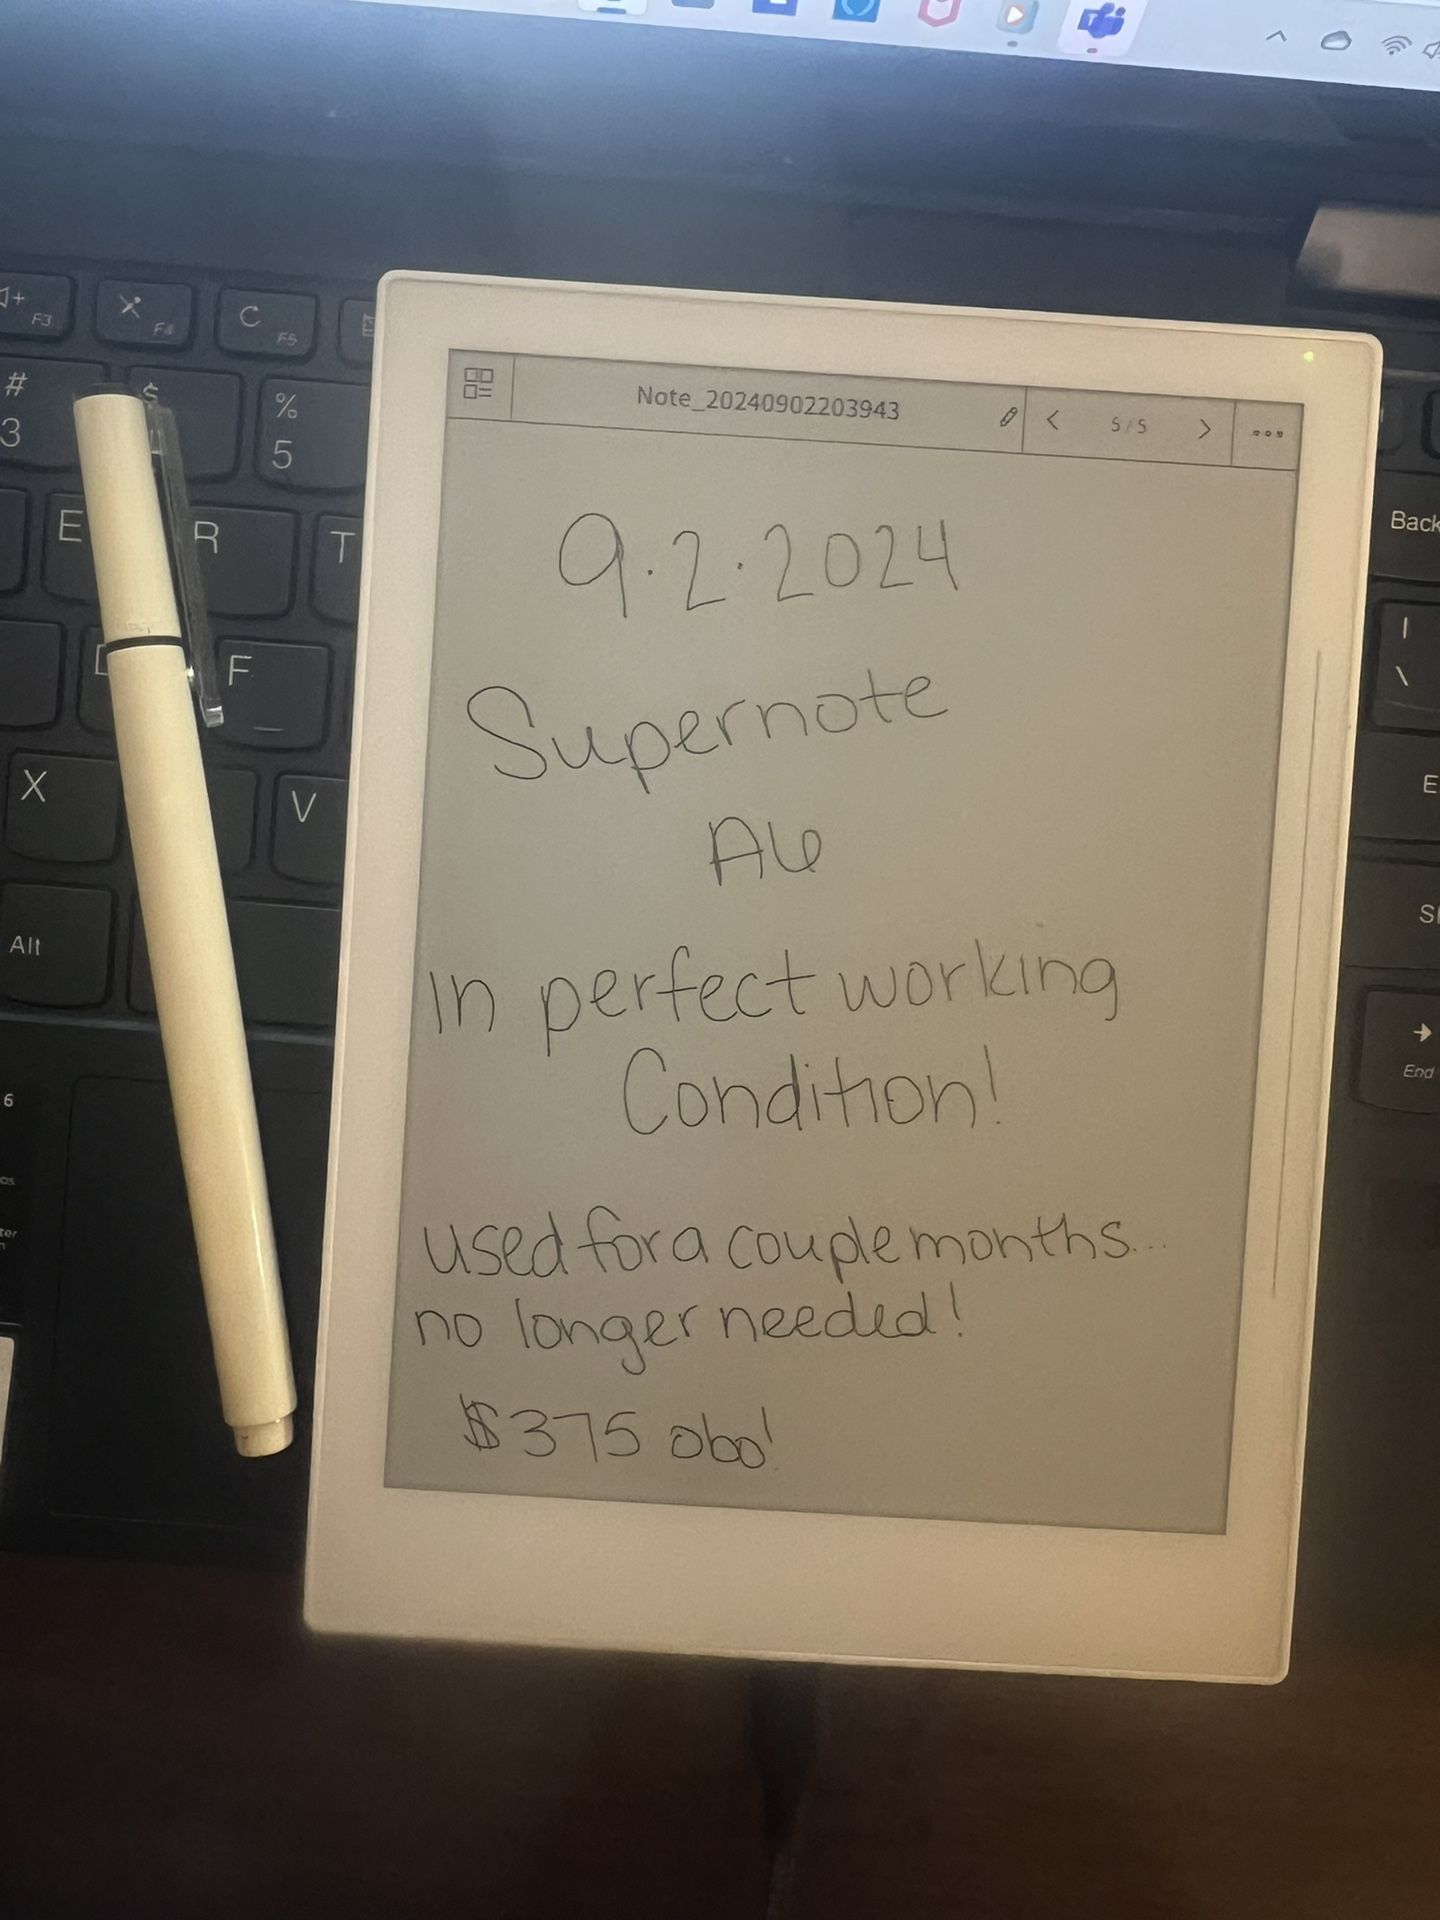 F3
F4
C F5
#
3
$
4
%
5
E
R
T
D
F
X
V
Alt
6
Note_20240902203943
5/5
9.2.2024
Supernote
A6
In perfect working
Condition!
used for a couple months...
no longer needed!
$375 obo!
Back
|
\
E
End